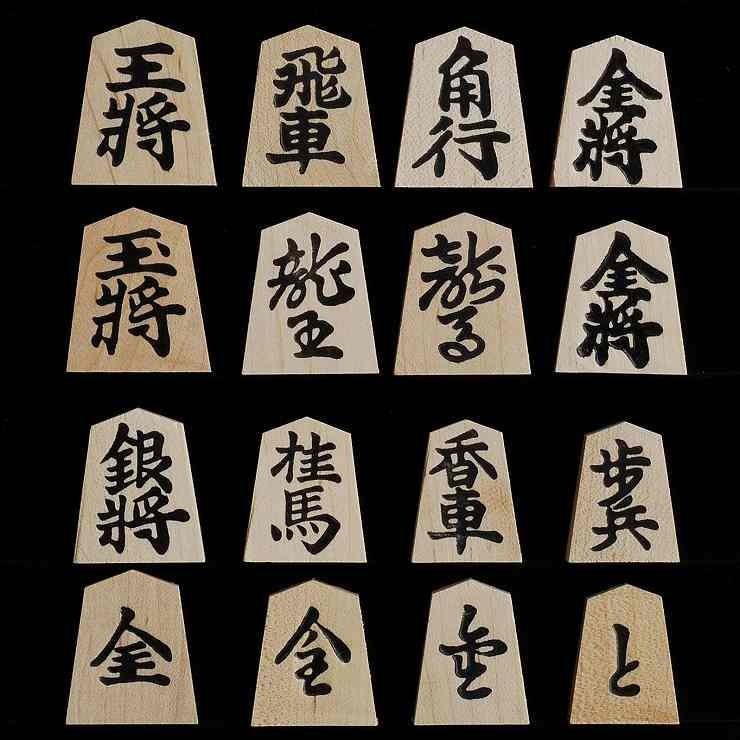 王將
飛車
角行
金將
玉將
龍王
龍馬
金將
銀將
桂馬
香車
歩兵
全
今
と